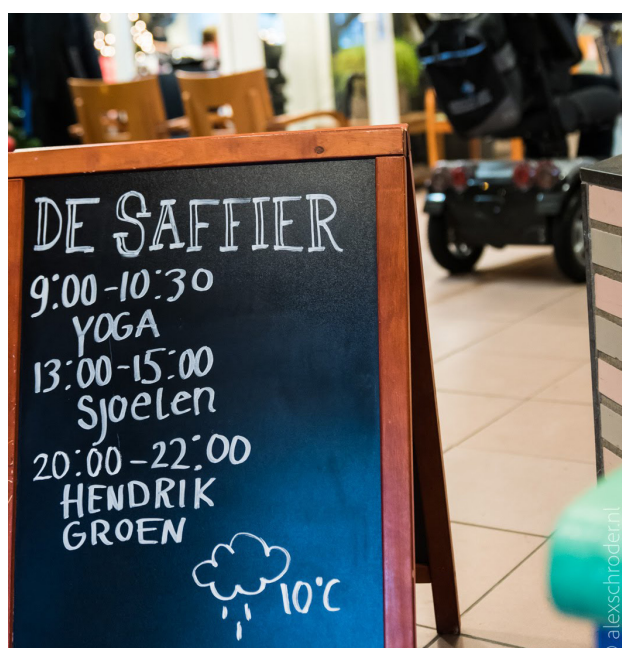 DE SAFFIER
9:00-10:30
YOGA
13:00-15:00
Sjoelen
20:00-22:00
HENDRIK
GROEN
10°C
© alexschroder.nl